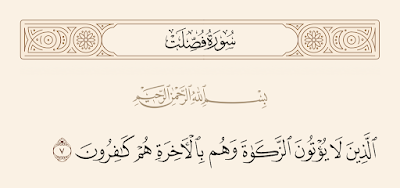 سُورَةُ فُصِّلَتْ
بِسْمِ ٱللَّهِ ٱلرَّحْمَٰنِ ٱلرَّحِيمِ
ٱلَّذِينَ لَا يُؤْتُونَ ٱلزَّكَوٰةَ وَهُم بِٱلْءَاخِرَةِ هُمْ كَـٰفِرُونَ ٧